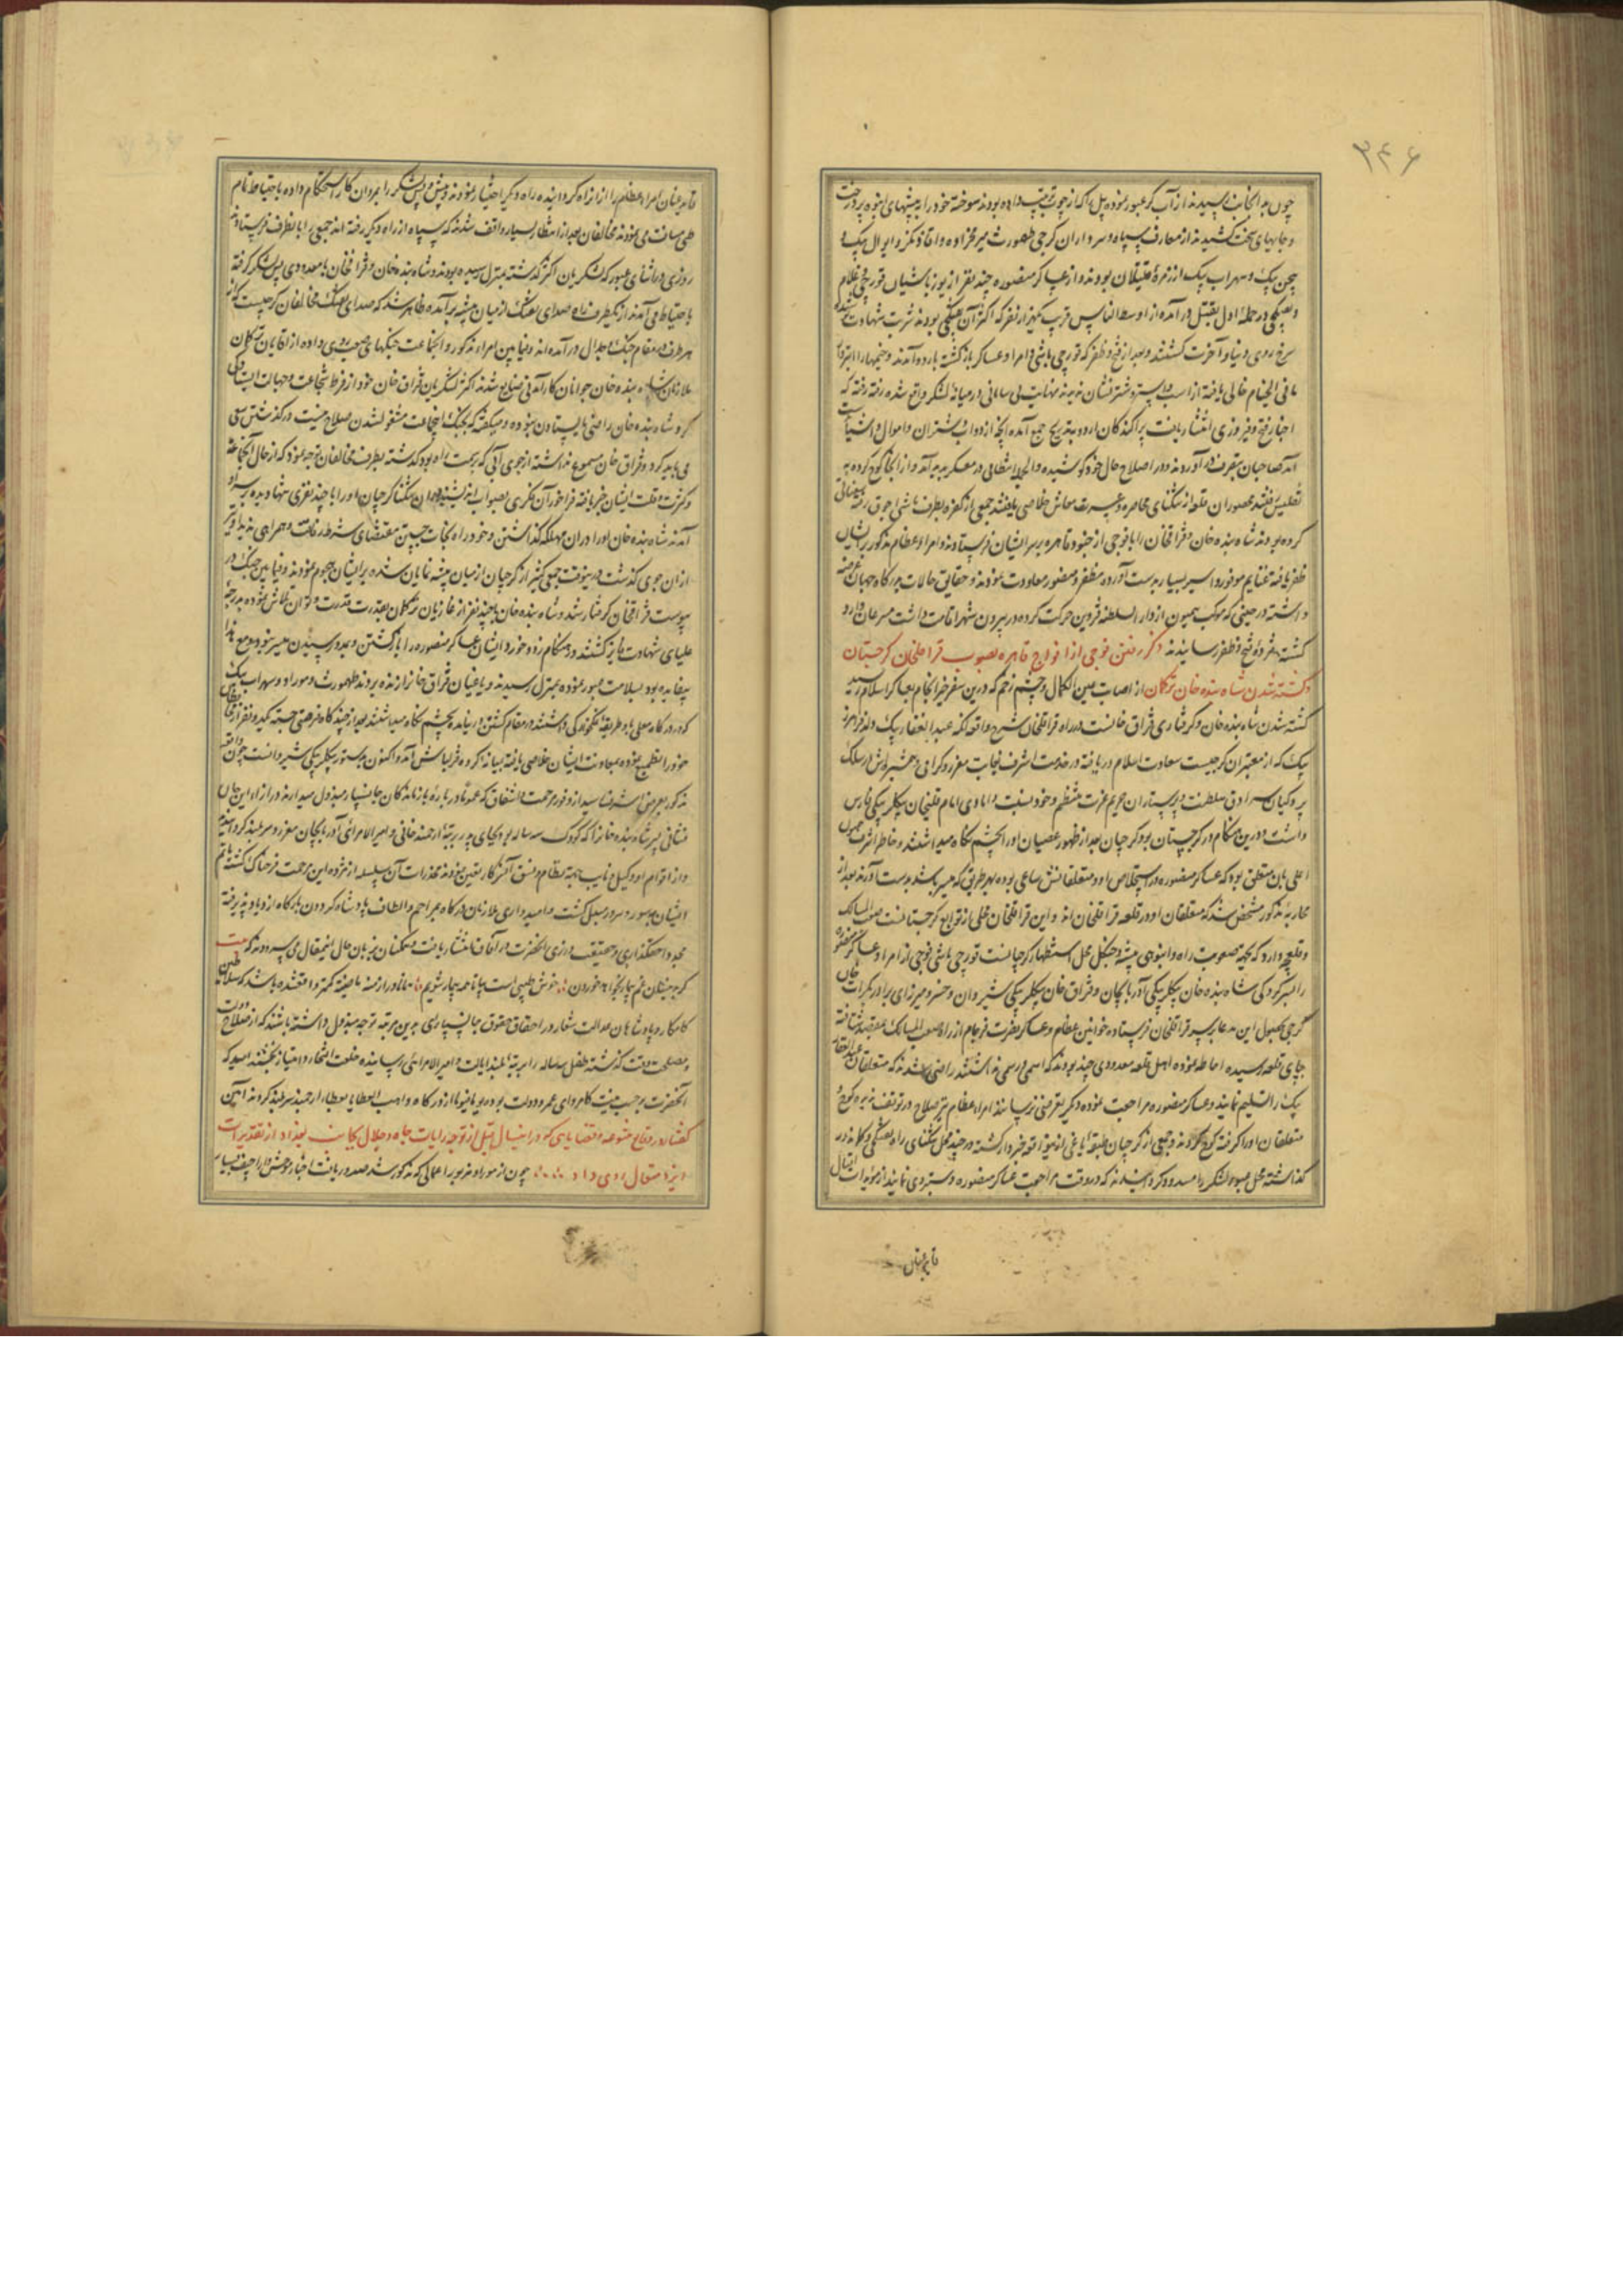 ۳۴۶
چون بدانجانب رسیدند از آب کر عبور نموده پل را که از چوب ترتیب داده بودند سوخته خود را به بیشهای انبوه پر درخت
و جایهای سخت کشیدند از معارف سپاه و سرداران کرجی طهمورث
بیک و سهراب بیک از زمره قتیلان بودند و از عساکر منصوره چند نفر از یوزباشیان قورچی و غلام
و تفنکچی در حمله اول بقتل درآمده از اوسط الناس قریب بهزار نفر که اکثر آن تفنکچی بودند شربت شهادت
سرخ روی دنیا و آخرت کشتند و بعد از فتح و ظفر که قورچی باشی و امرا و عساکر بازکشته باردو آمدند و خیمها را
مافی الخیام خالی یافته از اسب و استر و شتر نشان ندیدند بنهایت بی سامانی در میانه لشکر واقع شده رفته رفته که
اخبار فتح و فیروزی انتشار یافت پراکندکان اردو بتدریج جمع آمده آنچه از دواب و شتران و اموال و اشیا
صاحبان بتصرف درآوردند و در اصلاح حال خود کوشیده و انتظامی در معسکر پدید آمد و از آنجا کوچ کرده به
تفلیس رفتند محصوران قلعه از تنکنای محاصره و عسرت معاش خلاصی یافتند جمعی از بطرف
کرده بودند شاه بنده خان و قزاق خان را با فوجی از جنود قاهره بر سر ایشان فرستادند و امراء عظام مذکور بر ایشان
ظفر یافته غنایم موفور و اسیر بسیار بدست آورده مظفر و منصور معاودت نمودند و حقایق حالات بدرکاه جهان پناه عرضه
داشته در حینی که موکب همیون از دار السلطنه قزوین حرکت کرده در بیرون شهر اقامت داشت مسرعان وارد
کشته مژده فتح و ظفر رسانیدند ذکر رفتن فوجی از افواج قاهره بصوب قراقلخان کرجستان
و کشته شدن شاه بنده خان ترکمان از اصابت عین الکمال و چشم زخم که درین سفر خیر انجام بعساکر اسلام رسید
کشته شدن شاه بنده خان و کرفتاری قزاق خانست در راه قراقلخان شرح واقعه آنکه عبدالغفار بیک ولد فرامرز
بیک که از معتبران کرجیست سعادت اسلام دریافته در خدمت اشرف بغایت معزز و کرامی و همشیره اش در سلک
پردکیان سرادق سلطنت و پرستاران حریم عزت منتظم و خود بنسبت دامادی امام قلیخان بیکلربیکی فارس
داشت درین هنکام در کرجستان بود کرجیان بعد از ظهور عصیان او را بچشم نکاه میداشتند و خاطر اشرف همیون
اعلی بدان متعلق بود که عساکر منصوره در استخلاص او و متعلقانش ساعی بوده بهر طریق که میسر باشد بدست آورند بعد از
محاربه مذکور مشخص شد که متعلقان او در قلعه قراقلخان اند و این قراقلخان محلی از توابع کرجستانست صعب المسالک
و قلعچه دارد که بجهت صعوبت راه و انبوهی بیشه و جنکل محل استظهار کرجیانست قورچی باشی فوجی از امرا و عساکر منصوره
را بسرکردکی شاه بنده خان بیکلربیکی آذربایجان و قزاق خان بیکلربیکی شیروان و خسرو میرزای برادر بکرات خان
کرجی بحصول این مدعا بر سر قراقلخان فرستاده خوانین عظام و عساکر نصرت فرجام از راه صعب المسالک بمقصد شتافته
بپای قلعه رسیده احاطه نموده اهل قلعه معدودی چند بودند که اسمی و رسمی نداشتند راضی شدند که متعلقان عبدالغفار
بیک را تسلیم نمایند و عساکر منصوره مراجعت نموده دیکر تعرضی نرسانند امراء عظام نیز صلاح در توقف ندیده کوچ و
متعلقان او را کرفته کوچ کردند و جمعی از کرجیان طبقه یاغی ازینواقعه خبردار کشته در چند محل تنکنای راه تفنکچی و کماندار
کذاشته محل عبور لشکر را مسدود کردانیدند که در وقت مراجعت عساکر منصوره دستبردی نمایند از مؤیدات اقبال
قاید عنان
قاید عنان امراء عظام را از آن راه کردانیده راه دیکر اختیار نمودند و پیش و پس لشکر را بمردان کار استحکام داده باحتیاط تمام
طی مسافت می نمودند مخالفان بعد از انتظار بسیار واقف شدند که سپاه از راه دیکر رفته اند جمعی را بآنطرف فرستادند
روزی در اثنای عبور که لشکریان اکثر کذشته بمنزل رسیده بودند و شاه بنده خان و قزاقخان با معدودی پس لشکر کرفته
باحتیاط می آمدند از یکطرف راه صدای تفنک از میان بیشه برآمده ظاهر شد که صدای تفنک مخالفان کرجیست که از
هر طرف در مقام جنک و جدال درآمده اند و فیما بین امراء مذکور و آنجماعت جنکهای صعب روی داده از آقایان ترکمان
ملازمان شاه بنده خان جوانان کارآمدنی ضایع شدند اکثر لشکریان قزاق خان خود از فرط شجاعت و جهالت ایستادکی
کرد شاه بنده خان راضی بایستادن نبوده و میکفته که بجنک اینجماعت مشغول شدن صلاح نیست در کذشتن سعی
می باید کرد و قزاق خان مسموع نداشته از جوی آبی که بر سمت راه بود کذشته بطرف مخالفان توجه نمود که از حال آنجماعت
و کثرت و قلت ایشان خبر یافته فراخور آن فکری بصواب اندیشند در آن تنکنا کرجیان او را با چند نفری تنها دیده بر سر او
آمدند شاه بنده خان او را در آن مهلکه کذاشتن و خود راه نجات جستن مقتضای شرط رفاقت و همراهی ندیده او نیز
از آن جوی کذشت درینوقت جمعی کثیر از کرجیان از میان بیشه نمایان شده بر ایشان هجوم نمودند و فیما بین جنک در
پیوست قزاقخان کرفتار شد و شاه بنده خان با چند نفر از غازیان ترکمان بقدر قدرت و توان تلاش نموده بدرجه
علیای شهادت فایز کشتند و در هنکام زد و خورد ایشان عساکر منصوره را بازکشتن و بمدد رسیدن میسر نبود و مع هذا
بیفایده بود بسلامت عبور نموده بمنزل رسیدند و یاغیان قزاق خان را زنده بردند طهمورث و موراو و سهراب بیک
که در درکاه معلی با طریقه یکجهتی داشتند در مقام کشتن او نیامده بچشم نکاه میداشتند بعد از چند کاه فرصتی جسته یکدو نفر از
خود را تطمیع نموده بمعاونت ایشان خلاصی یافته بمیانه کروه قزلباش آمد و اکنون بدستور بیکلربیکی شیروانست چون واقعه
مذکور بعرض اشرف رسید از وفور مرحمت و اشفاق که همواره درباره بازماندکان جانسپار مبذول میدارند در ازاء این جان
فشانی پسر شاه بنده خان را که کودک سه ساله بود بجای پدر برتبه ارجمند خانی و امیرالامرائی آذربایجان معزز و سربلند کردانیدند
و از اقوام او وکیل و نایب جهت نظام و نسق آن سرکار تعیین فرمودند مخدرات آن سلسله از مژده این مرحمت فرحناک کشته ماتم
ایشان بسور و سرور مبدل کشت و امیدواری ملازمان درکاه بمراحم و الطاف پادشاه کردون بارکاه ازدیاد پذیرفته
مجددا حقکذاری و حقیقت ورزی آنحضرت در آفاق انتشار یافت و همکنان بزبان حال اینمقال می سرودند که بیت
کر چنین غم بیماری خواهد خوردن خوش طبیبی است بیا تا همه بیمار شویم همانا در ازمنه ماضیه کمتر واقعشده باشد که سلاطین
کامکار و پادشاهان عدالت شعار در احقاق حقوق جانسپاری بدین مرتبه توجه مبذول داشته باشند که از صلاح دولت
و مصلحت وقت کذشته طفل سه ساله را برتبه بلند ایالت و امیرالامرائی رسانیده خلعت افتخار و امتیاز بخشند امید که
آنحضرت بر حسب نیت کامروای عمر و دولت بوده یوما فیوما از درکاه واهب العطایا بعطایاء ارجمند سربلند کردند آمین
کفتار در وقایع متنوعه و قضایایی که در اینسال قبل از توجه رایات جاه و جلال بجانب بغداد از تقدیرات
ایزد متعال روی داد چون از موراو غدر و بد اعمالی که مذکور شد صدور یافت اخبار موحش و اراجیف بسیار